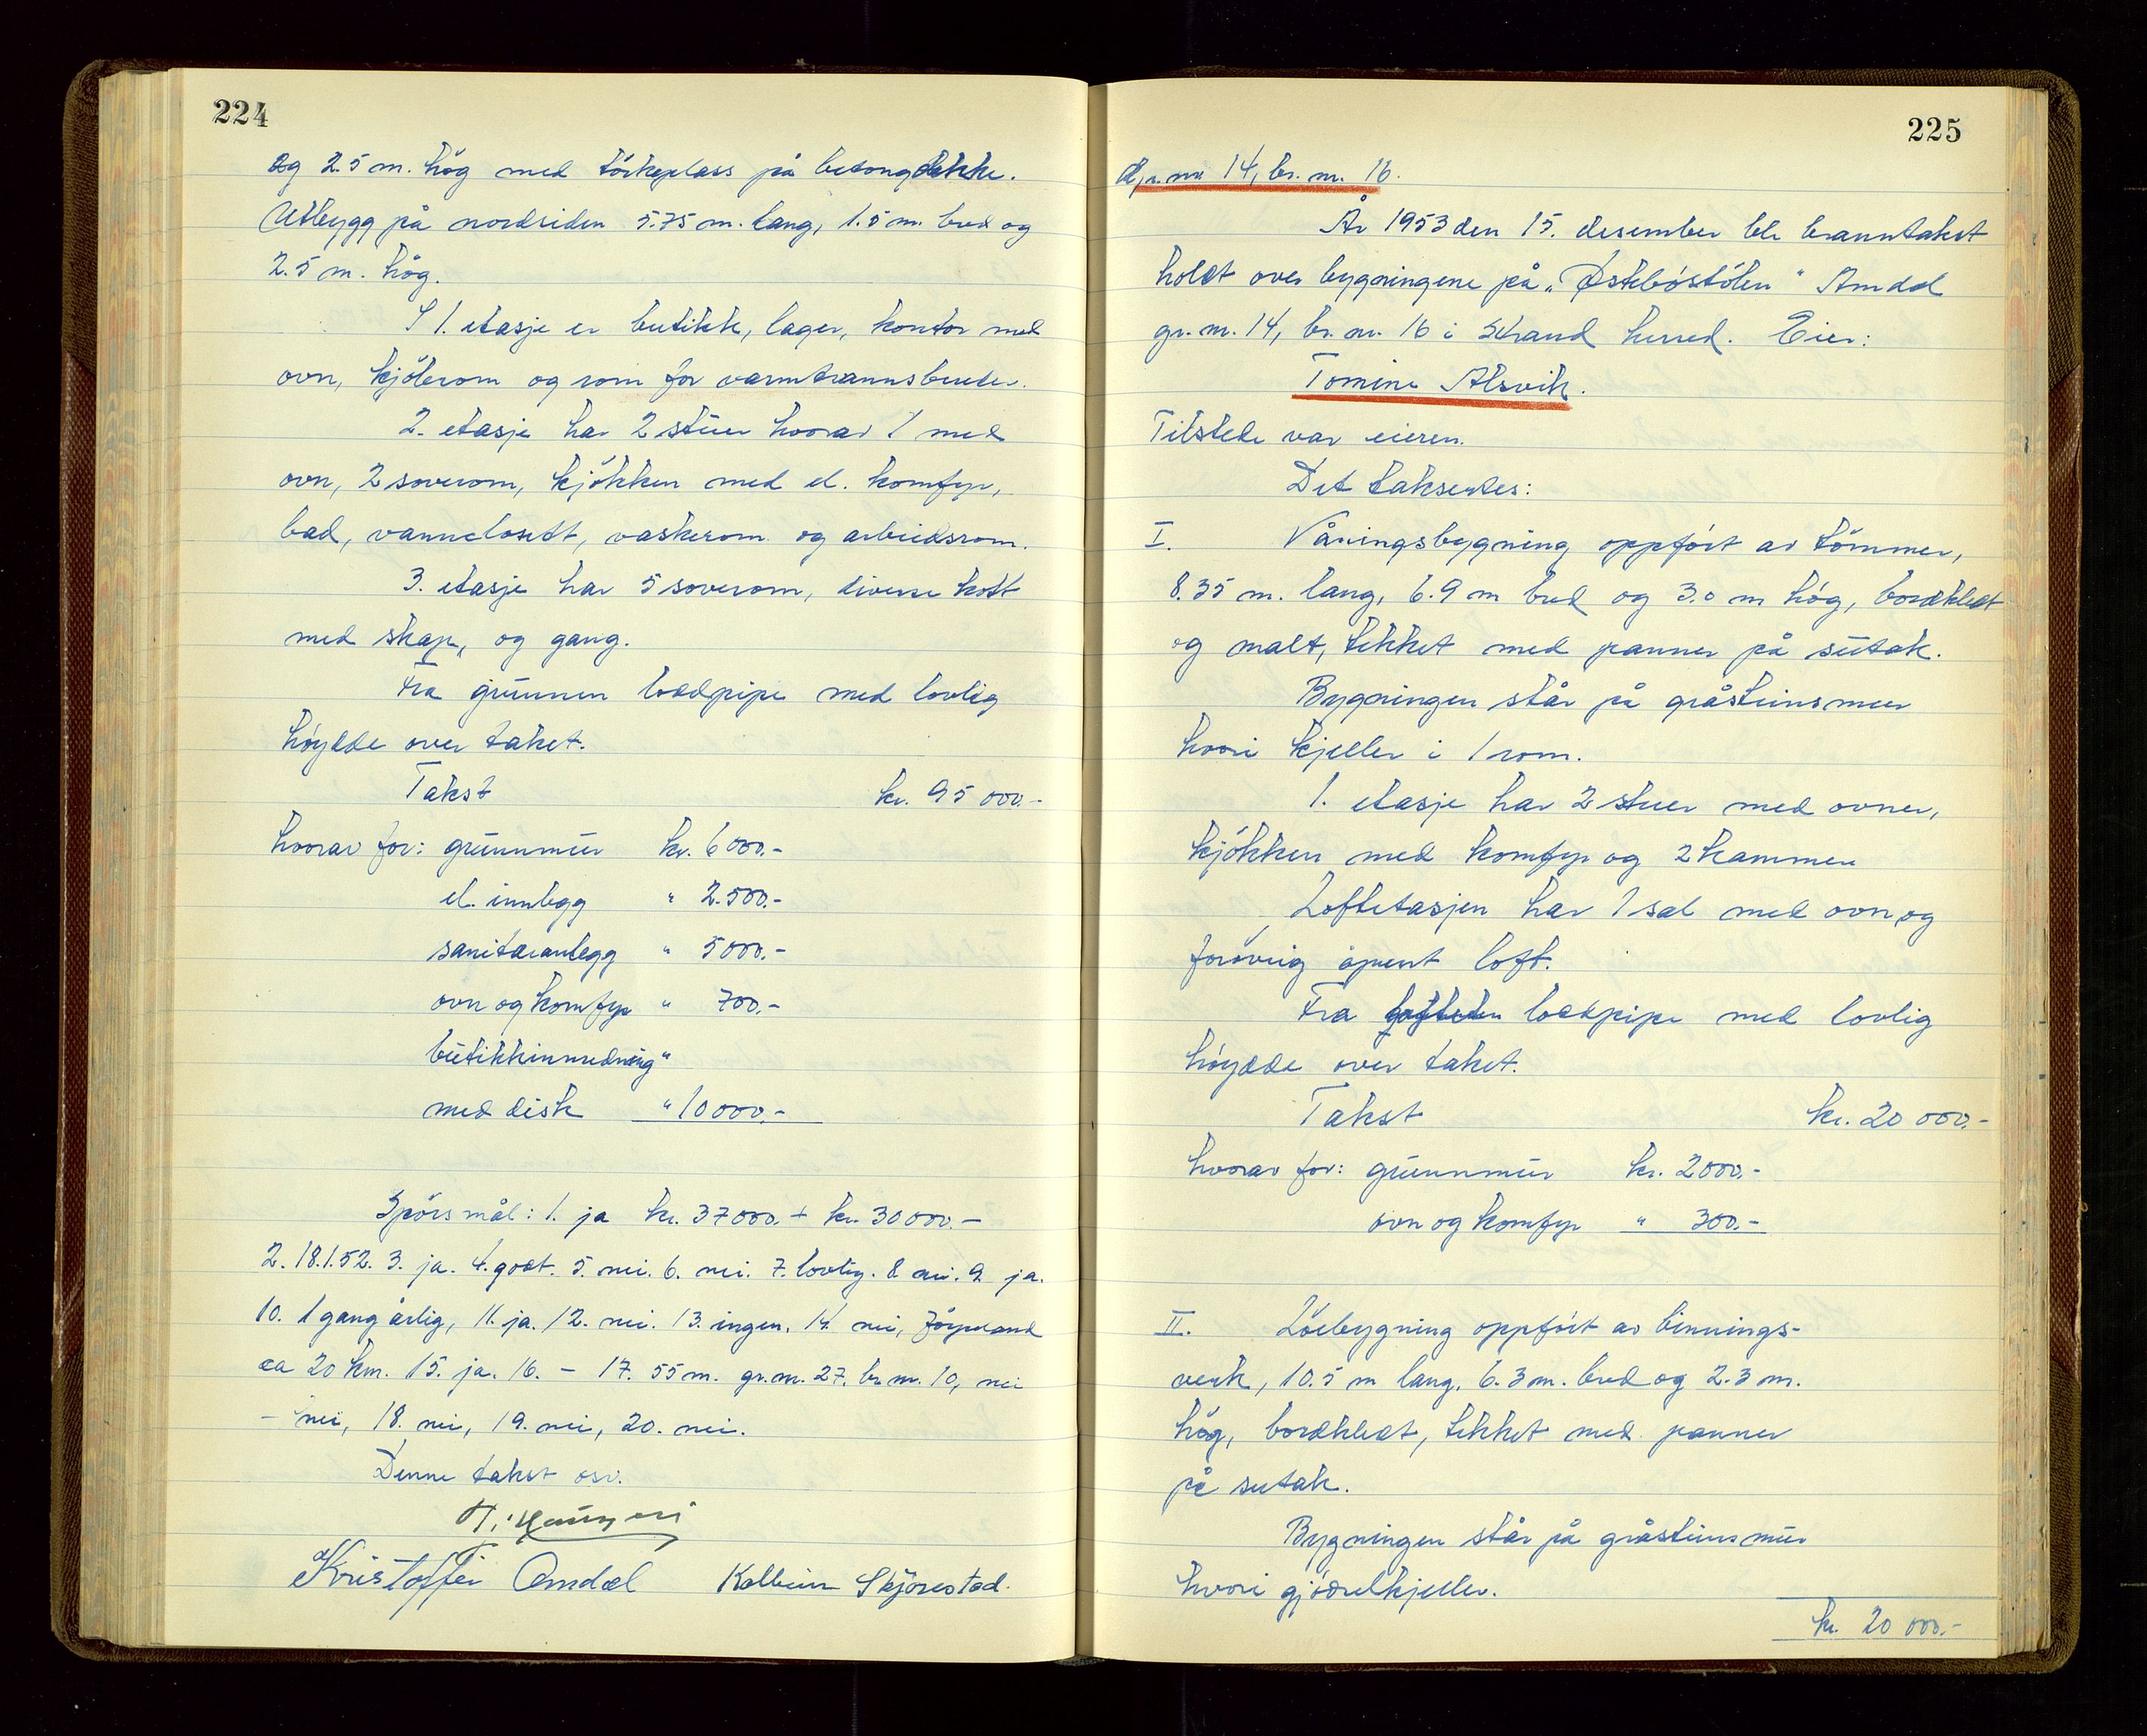 224
og 2.5 m. hög med törkeplass på betongdekke.
Utbygg på nordsiden 5.75 m. lang, 1.5 m. bred og
2.5 m. hög.
I 1. etasje er butikk, lager, kontor med
ovn, kjölerom og rom for varmtvannsbereder.
2. etasje har 2 stuer hvorav 1 med
ovn, 2 soverom, kjökken med el. komfyr,
bad, vannclosett, vaskerom og arbeidsrom.
3. etasje har 5 soverom, diverse kott
med skap, og gang.
Fra grunnen loddpipe med lovlig
höydde over taket.
Takst kr. 95 000.-
hvorav for: grunnmur kr. 6000.-
el. innlegg " 2.500.-
sanitæranlegg " 5000.-
ovn og komfyr " 700.-
butikkinnredning "
med disk " 10000.-
Spörsmål: 1. ja kr. 37000.+ kr. 30000.-
2. 18.1.52. 3. ja. 4. godt. 5. nei. 6. nei. 7. lovlig. 8. nei. 9. ja.
10. 1 gang årlig, 11. ja. 12. nei. 13. ingen. 14. nei, Jörpeland
ca 20 km. 15. ja. 16. - 17. 55 m. gr.nr. 27. br.nr. 10, nei
- nei, 18. nei, 19. nei, 20. nei.
Denne takst osv.
Kristoffer Amdal Kolbein Skjörestad.
225
Gr.nr. 14, br. nr. 16.
År 1953 den 15. desember ble branntakst
holdt over bygningene på "Östeböstölen" Amdal
gr. nr. 14, br. nr. 16 i Strand herred. Eier:
Tomine Alsvik.
Tilstede var eieren.
Det taksertes:
I. Våningsbygning oppfört av tömmer,
8.35 m. lang, 6.9 m bred og 3.0 m hög, bordkledt
og malt, tekket med panner på sutak.
Bygningen står på gråsteinsmur
hvori kjeller i 1 rom.
1. etasje har 2 stuer med ovner,
kjökken med komfyr og 2 kammer
Loftetasjen har 1 sal med ovn, og
forövrig åpent loft.
Fra loddpipe med lovlig
höydde over taket.
Takst kr. 20 000.-
hvorav for: grunnmur kr. 2000.-
ovn og komfyr " 300.-
II. Löebygning oppfört av binnings-
verk, 10.5 m lang, 6.3 m. bred og 2.3 m.
hög, bordkledt, tekket med panner
på sutak.
Bygningen står på gråsteinsmur
hvori gjödselkjeller.
kr. 20 000.-